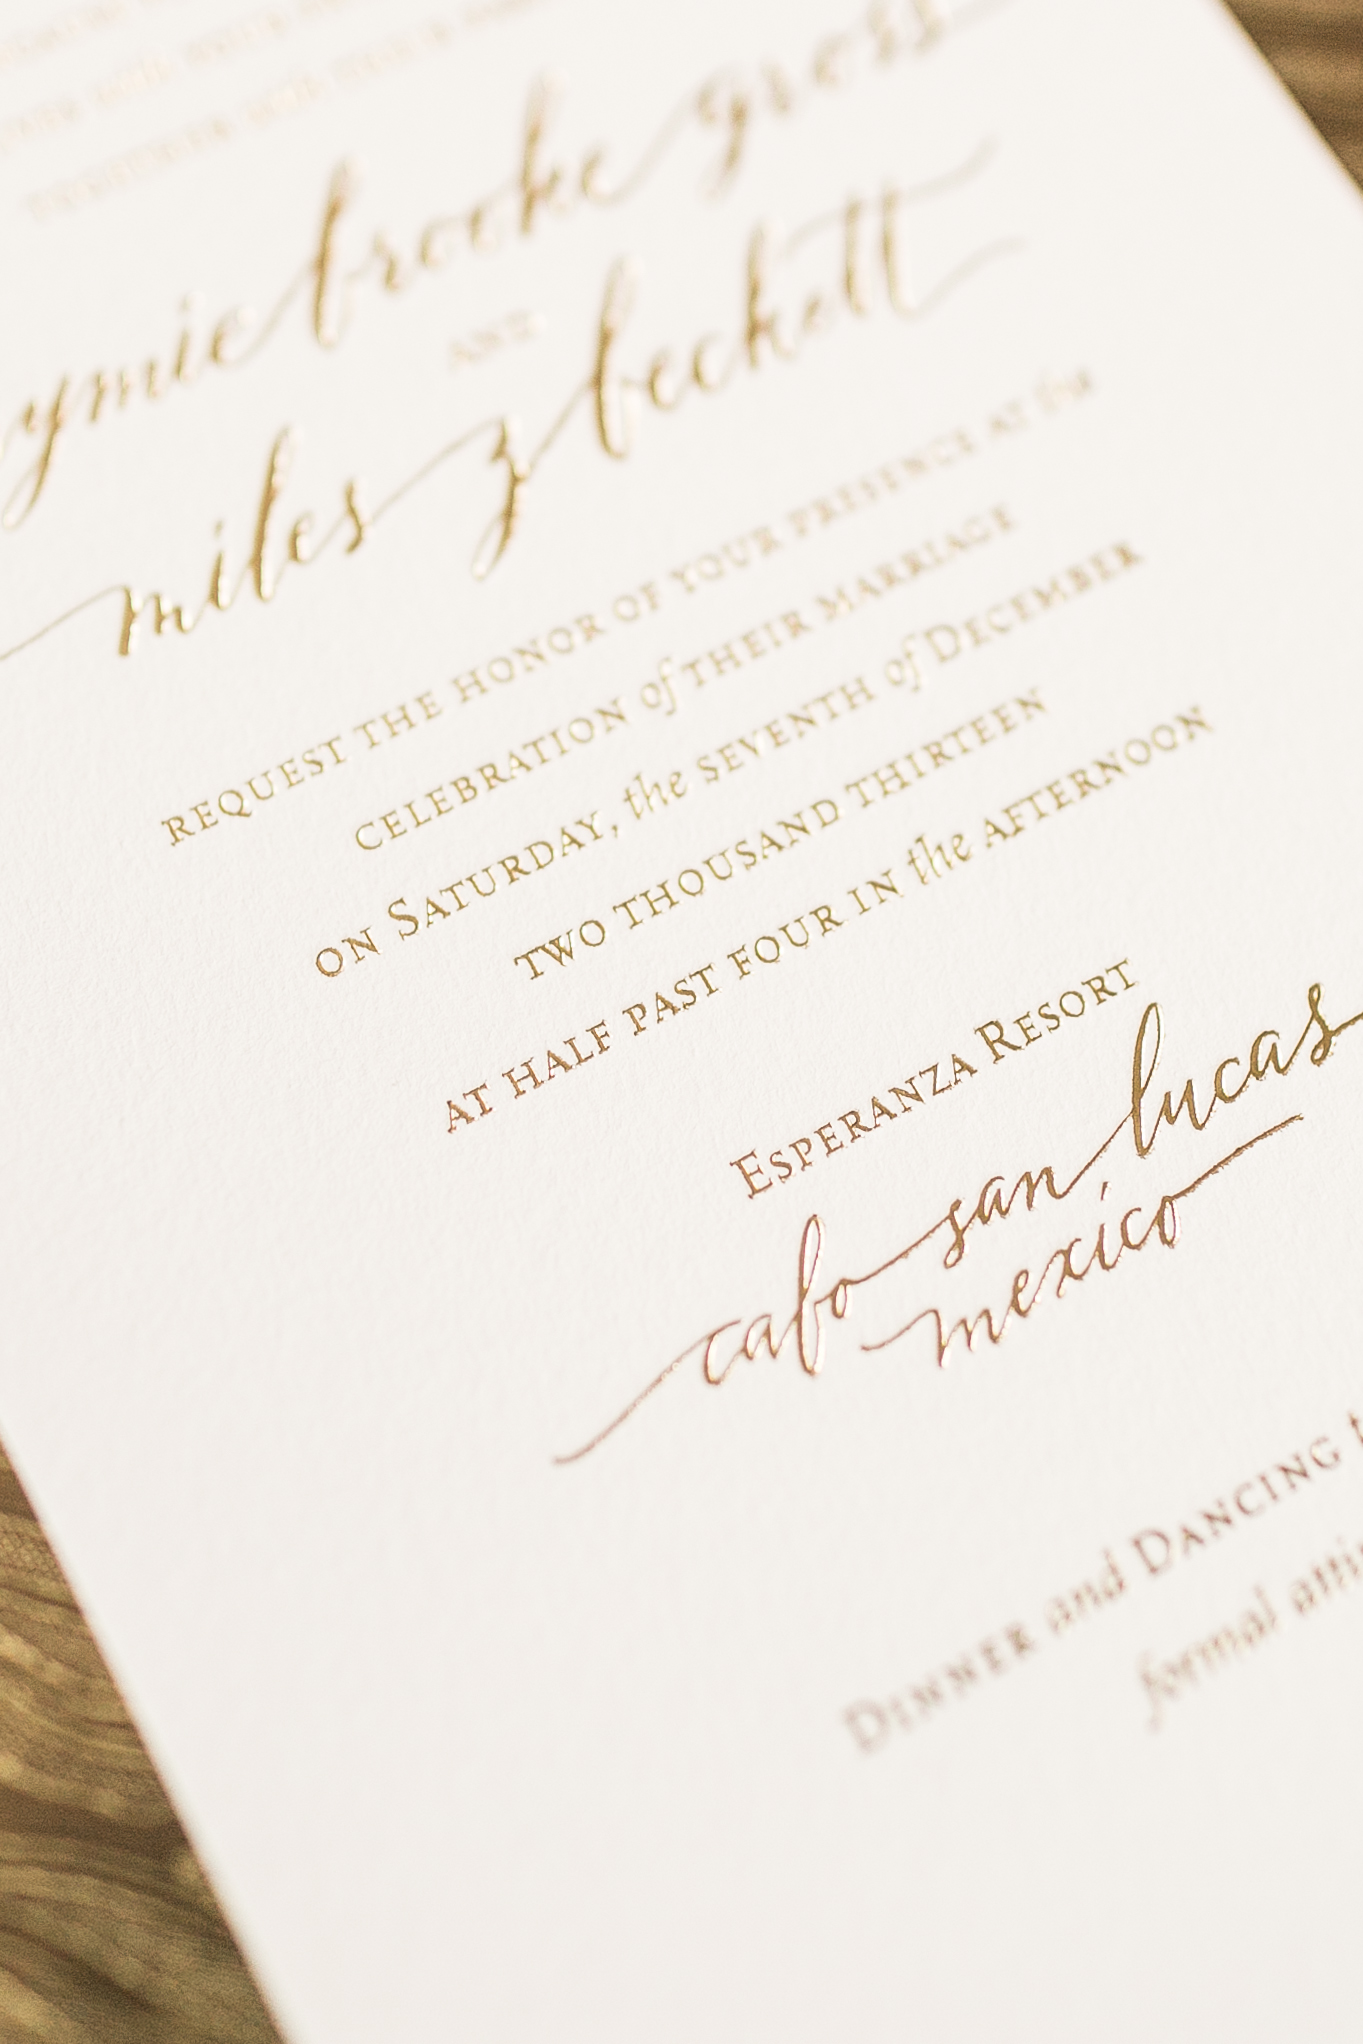 brooke gross
AND
miles z beckett
REQUEST THE HONOR OF YOUR PRESENCE AT the
CELEBRATION of THEIR MARRIAGE
ON SATURDAY, the SEVENTH of DECEMBER
TWO THOUSAND THIRTEEN
AT HALF PAST FOUR IN the AFTERNOON
ESPERANZA RESORT
cabo san lucas
mexico
DINNER and DANCING
formal